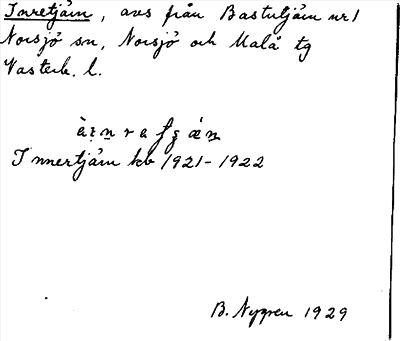 Inretjärn, avs från Bastutjärn nr 1
Norsjö sn, Norsjö och Malå tg
Västerb. l.
Innertjärn kb 1921-1922
B. Nygren 1929